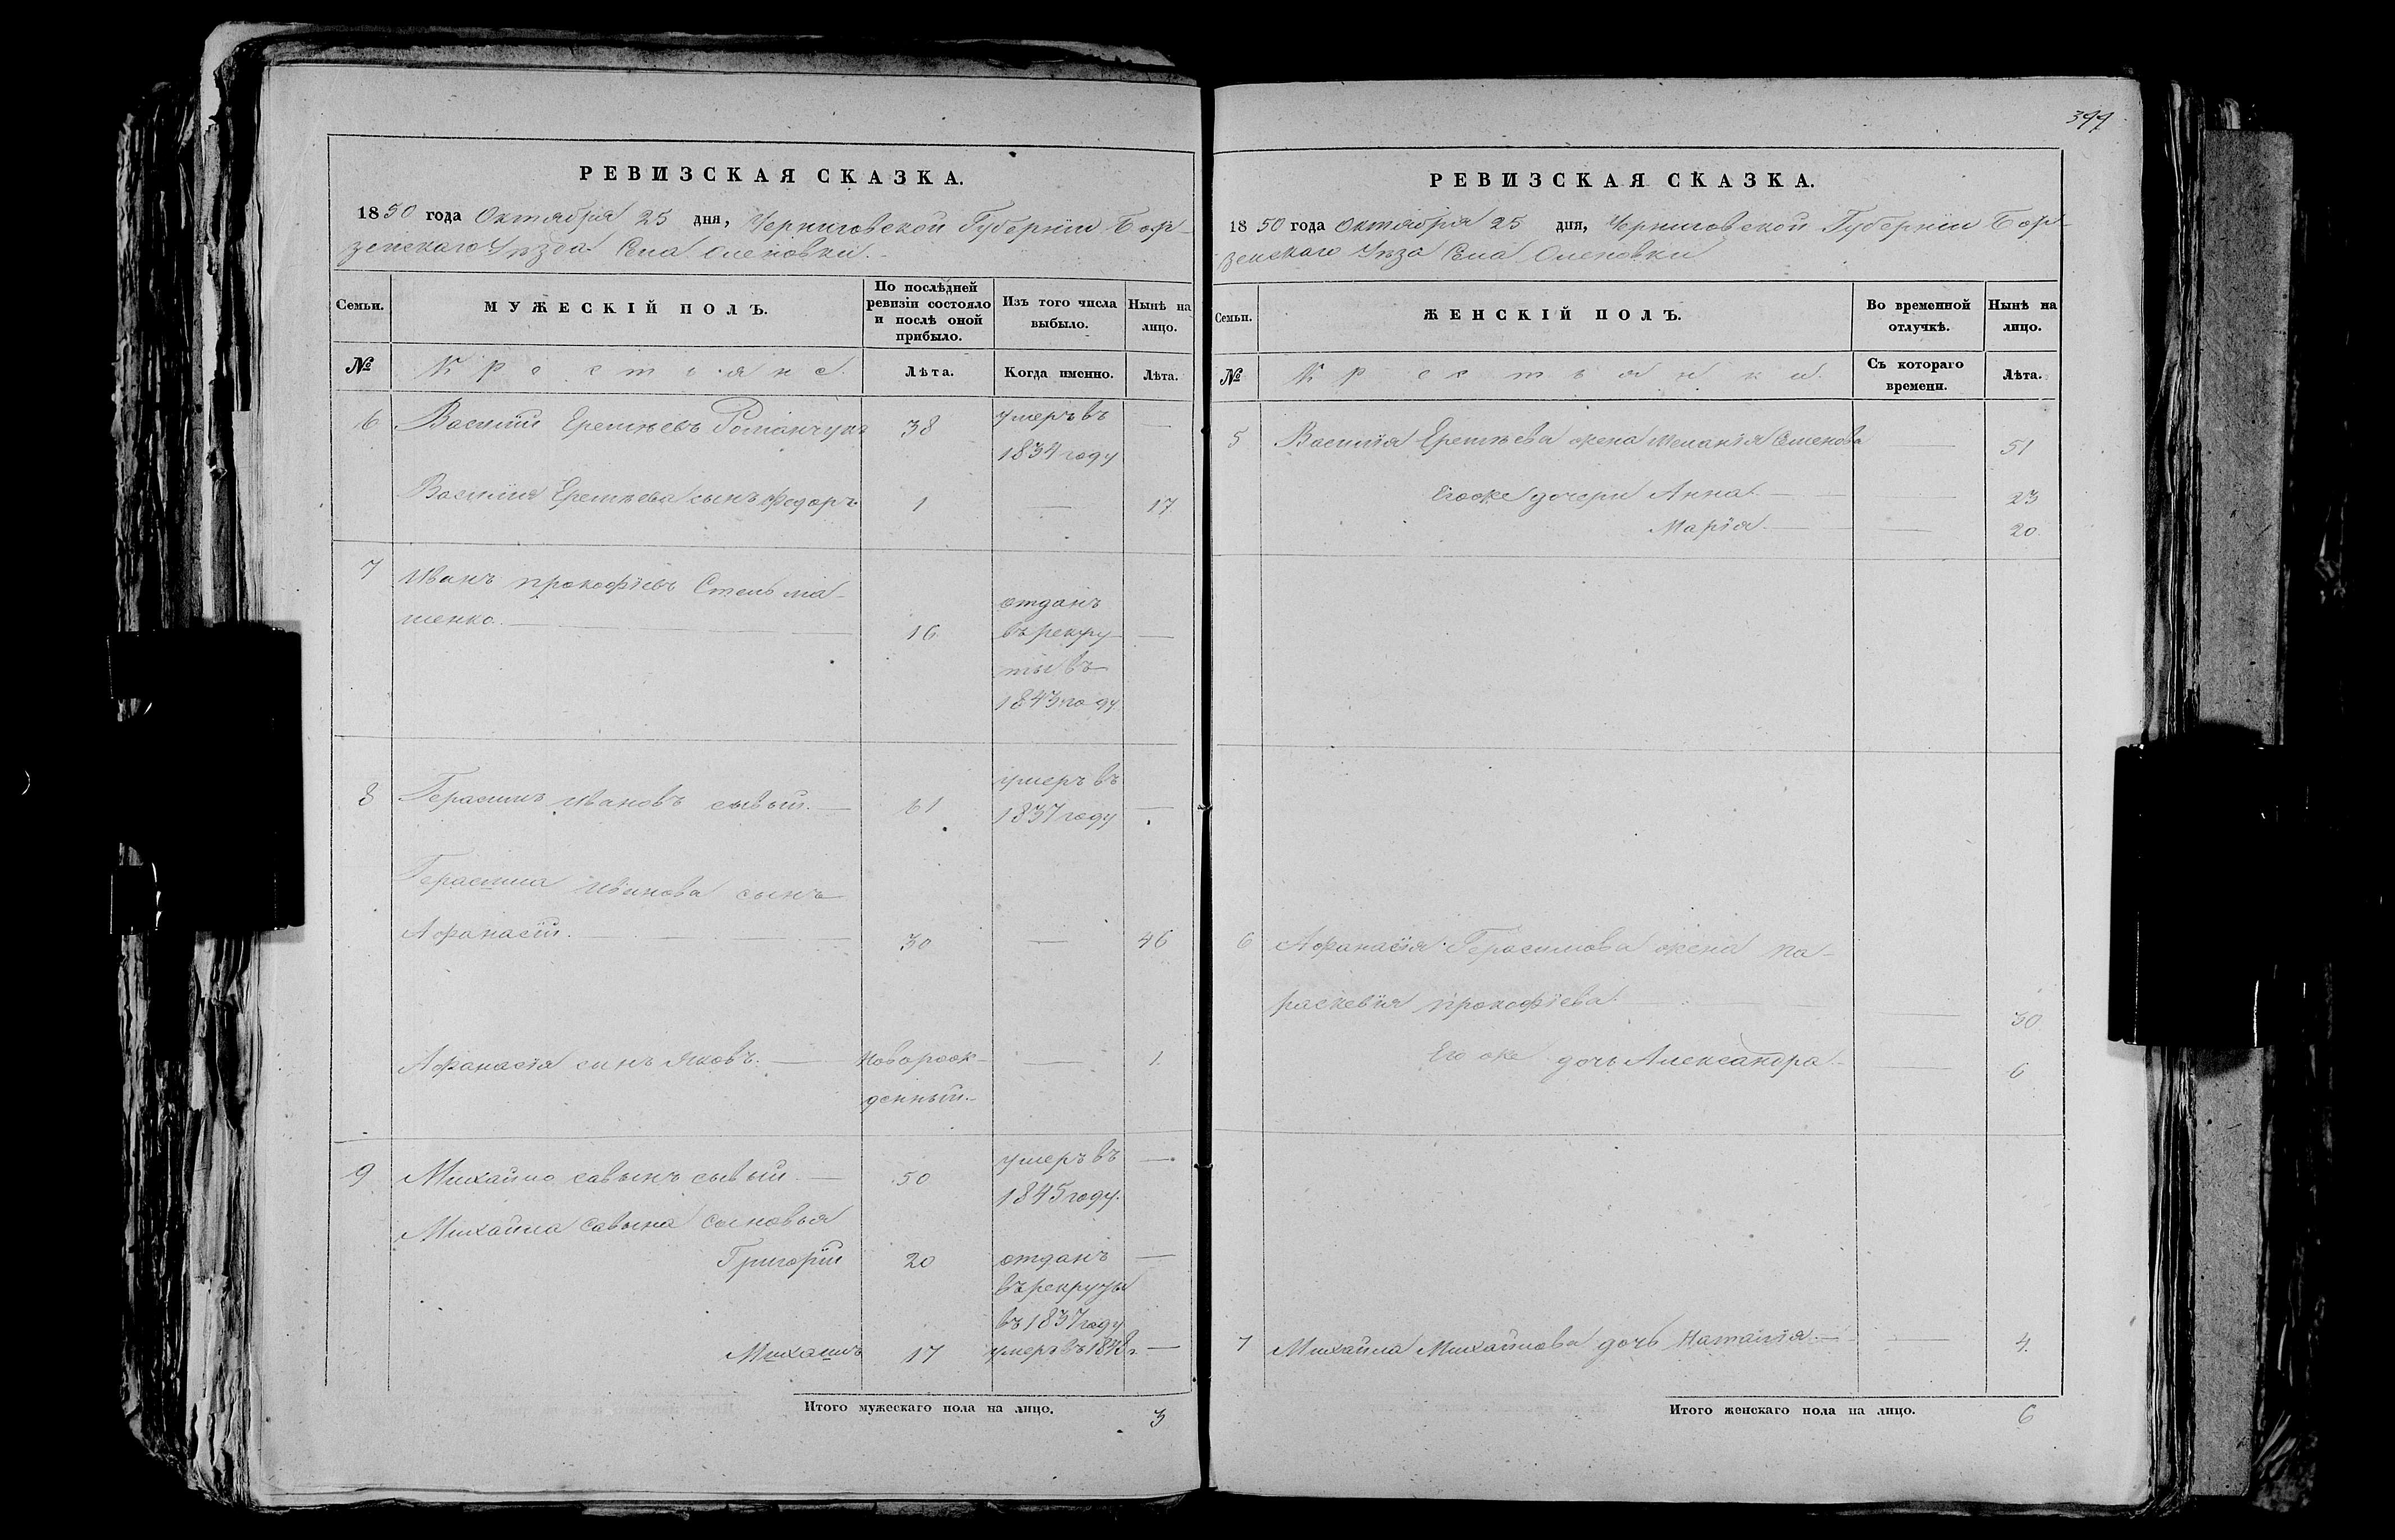 РЕВИЗСКАЯ СКАЗКА.
1850 года Октября 25 дня, Черниговской Губернїи Бор-
зенскаго Уѣзда Села Оленовки.
Семьи.
МУЖЕСКІЙ ПОЛЪ.
По послѣдней
ревизіи состояло
и послѣ оной
прибыло.
Изъ того числа
выбыло.
Нынѣ на
лицо.
№
Крестьяне.
Лѣта.
Когда именно.
Лѣта.
6 Василїй Еремѣевъ Романчукъ 38 умеръ въ —
1834 году
Василїя Еремѣева сынъ Федоръ 1 — 17
7 Иванъ Прокофїевъ Стельма-
шенко. — 16 отданъ
въ рекру —
ты въ
1843 году
8 Герасимъ Ивановъ сывый. — 61 умеръ въ
1837 году —
Герасима Иванова сынъ
Афанасїй. — 30 — 46
Афанасїя сынъ Яковъ. —Новорож- — 1.
денный.
9 Михайло савынъ сывый — 50 умеръ въ —
1845 году.
Михайла савына сыновья
Григорїй 20 отданъ —
въ рекруты
въ 1837 году
Михаилъ 17 умеръ въ 1848 г. —
Итого мужескаго пола на лицо. 3
399
РЕВИЗСКАЯ СКАЗКА.
1850 года Октября 25 дня, Черниговской Губернїи Бор-
зенскаго Уѣзда Села Оленовки
Семьи.
ЖЕНСКІЙ ПОЛЪ.
Во временной
отлучкѣ.
Нынѣ на
лицо.
№
Крестьянки.
Съ котораго
времени.
Лѣта.
5 Василїя Еремѣева жена Меланїя Семенова — 51
Егоже дочери Анна. — 23
Марїя — 20
6 Афанасїя Герасимова жена Па-
раскевїя Прокофїева. — 30
Его же дочь Александра. — 6
7 Михайла Михайлова дочь Наталїя — 4.
Итого женскаго пола на лицо. 6